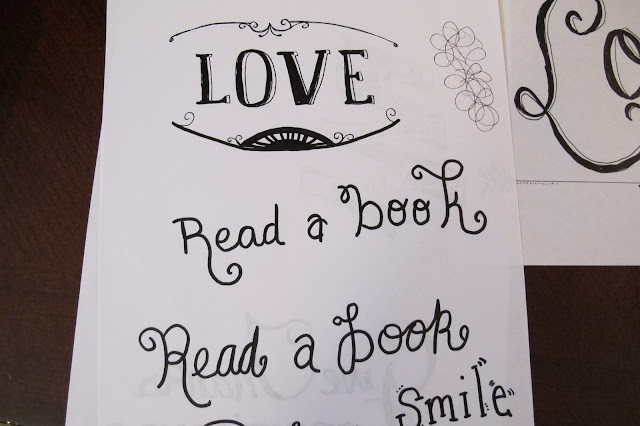 LOVE
Read a book
Read a book
Smile